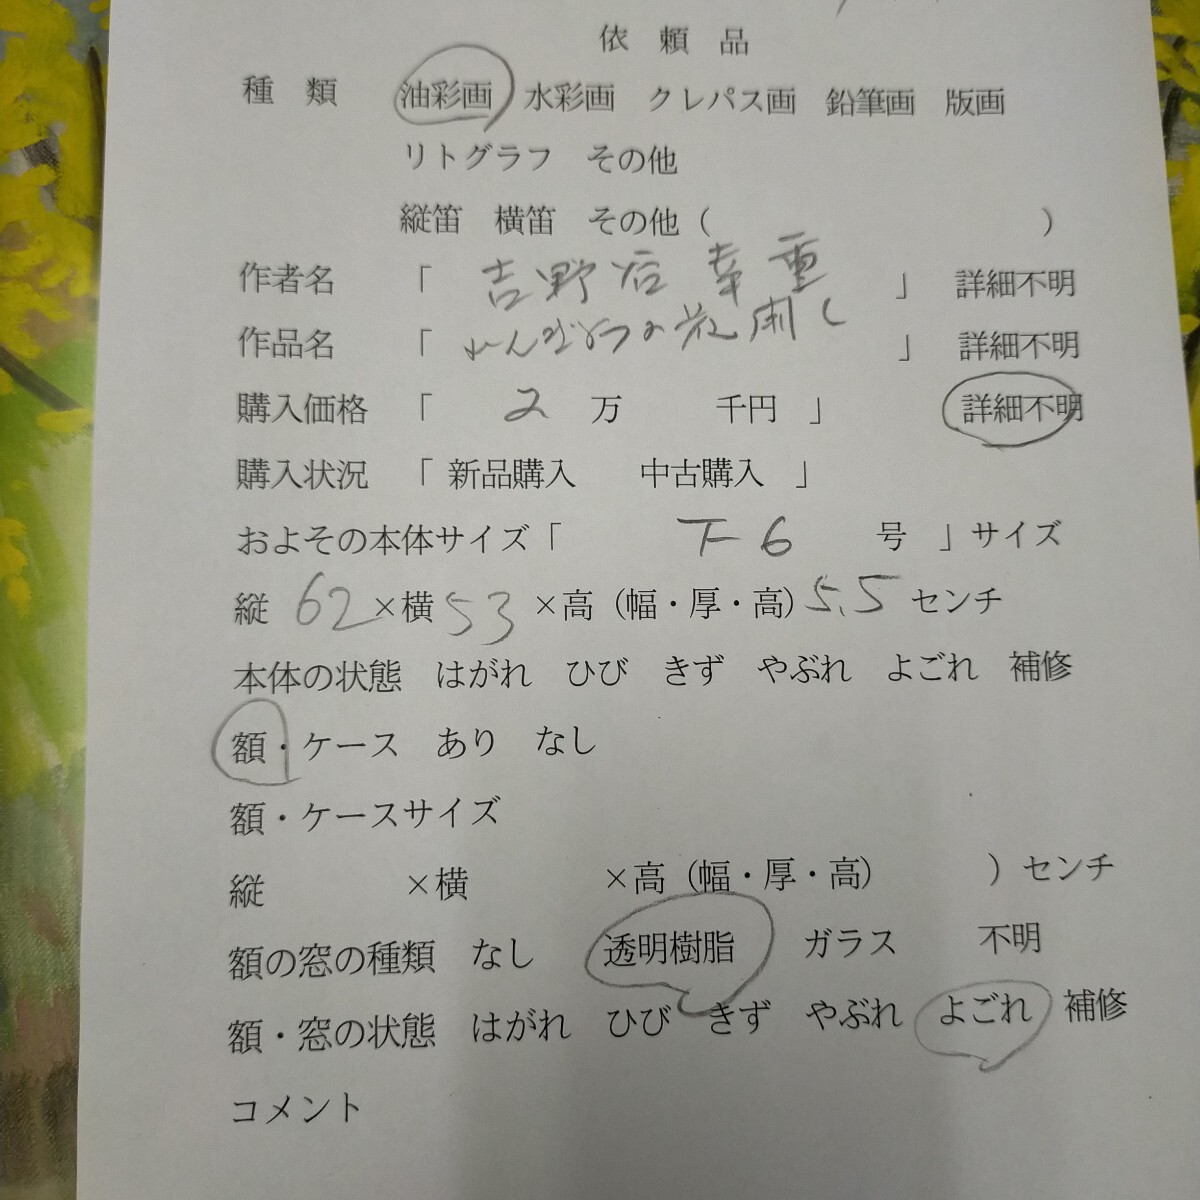 依頼品
種類 油彩画 水彩画 クレパス画 鉛筆画 版画
リトグラフ その他
縦笛 横笛 その他( )
作者名 「 吉野 幸重 」 詳細不明
作品名 「 」 詳細不明
購入価格 「 2 万 千円 」 詳細不明
購入状況 「 新品購入 中古購入 」
およその本体サイズ「 F6 号 」サイズ
縦 62 ×横 53 ×高(幅・厚・高) 5.5 センチ
本体の状態 はがれ ひび きず やぶれ よごれ 補修
額・ケース あり なし
額・ケースサイズ
縦 ×横 ×高(幅・厚・高) )センチ
額の窓の種類 なし 透明樹脂 ガラス 不明
額・窓の状態 はがれ ひび きず やぶれ よごれ 補修
コメント